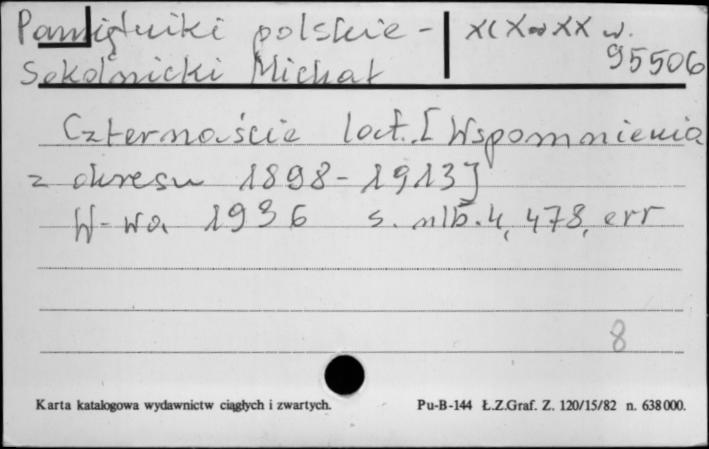 Pamiętniki polskie - XIX-XX w.
95506
Sokolnicki Michał
Czternaście lat. [Wspomnienia
z okresu 1898-1913]
W-wa 1936 s. nlb. 4, 478, err
8
Karta katalogowa wydawnictw ciągłych i zwartych. Pu-B-144 Ł.Z.Graf. Z. 120/15/82 n. 638000.